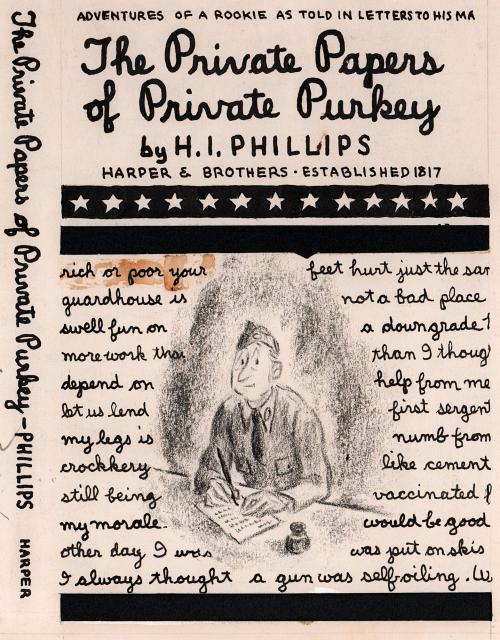 The Private Papers of Private Purkey – PHILLIPS HARPER
ADVENTURES OF A ROOKIE AS TOLD IN LETTERS TO HIS MA
The Private Papers
of Private Purkey
by H.I. PHILLIPS
HARPER & BROTHERS · ESTABLISHED 1817
rich or poor your feet hurt just the
guardhouse is not a bad place
swell fun on a downgrade
more work than than I thoug
depend on help from me
let us lend first sergent
my legs is numb from
crockkery like cement
still being vaccinated
my morale would be good
other day I was was put on skis
I always thought a gun was self-oiling.